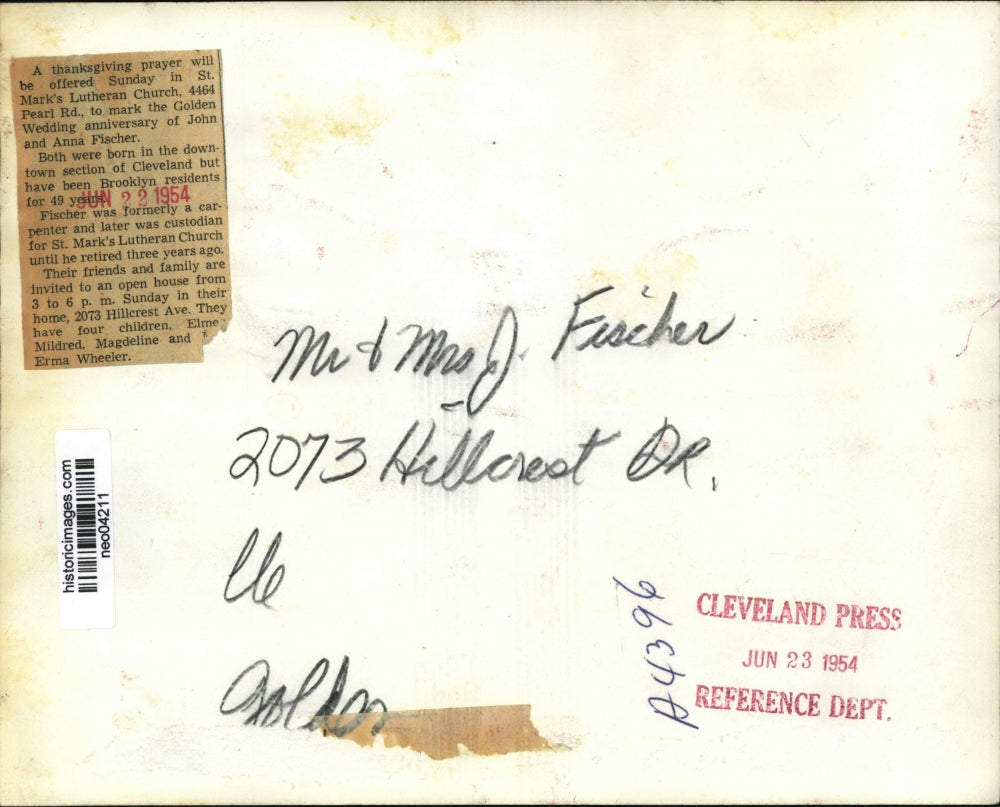 A thanksgiving prayer will
be offered Sunday in St.
Mark's Lutheran Church, 4464
Pearl Rd., to mark the Golden
Wedding anniversary of John
and Anna Fischer.
Both were born in the down-
town section of Cleveland but
have been Brooklyn residents
for 49 years.
JUN 22 1954
Fischer was formerly a car-
penter and later was custodian
for St. Mark's Lutheran Church
until he retired three years ago.
Their friends and family are
invited to an open house from
3 to 6 p. m. Sunday in their
home, 2073 Hillcrest Ave. They
have four children, Elme
Mildred, Magdeline and
Erma Wheeler.
Mr & Mrs J. Fischer
2073 Hillcrest DR.
Golden
historicimages.com
neo04211
A4396
CLEVELAND PRESS
JUN 23 1954
REFERENCE DEPT.